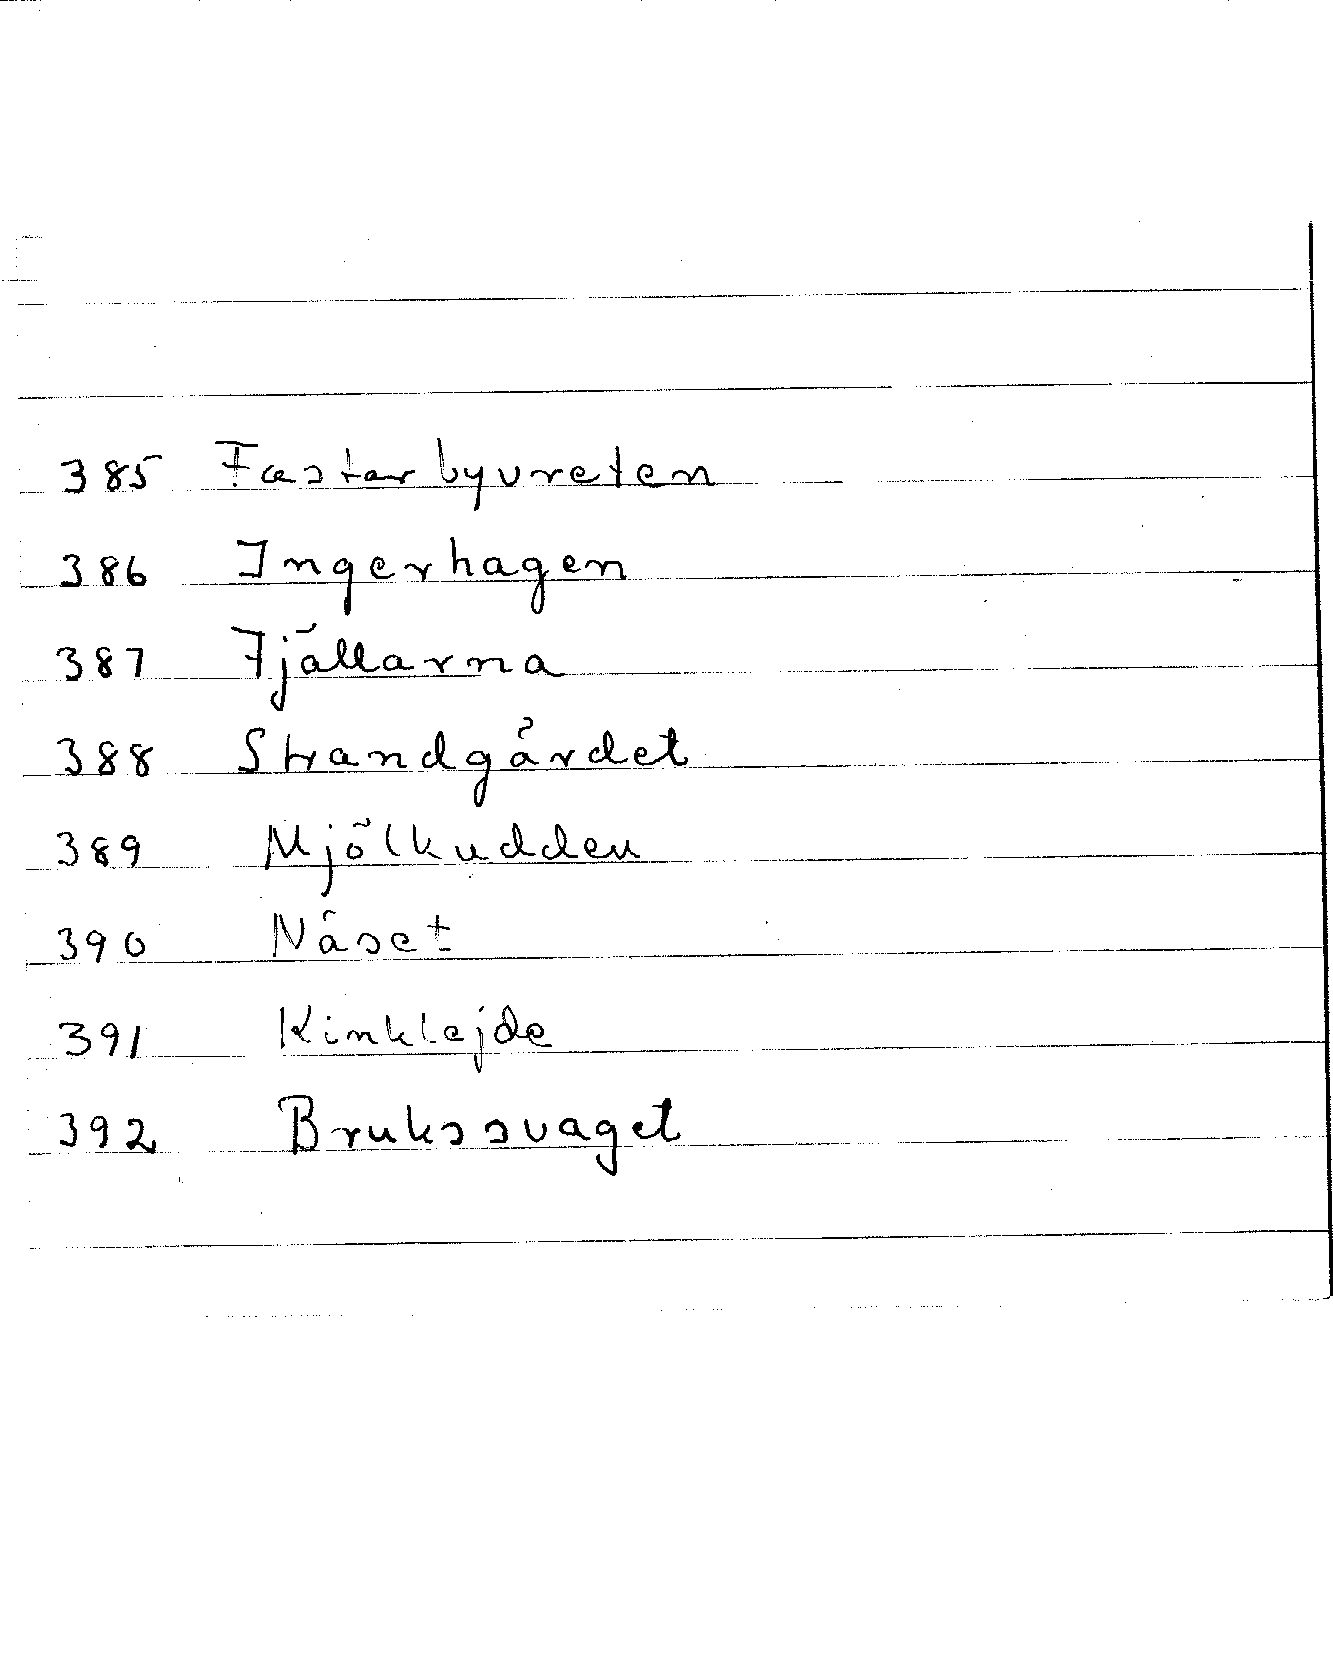 385 Fastarbyvreten
386 Ingerhagen
387 Fjällarna
388 Strandgårdet
389 Mjölkudden
390 Näset
391 Kinklejde
392 Brukssvaget